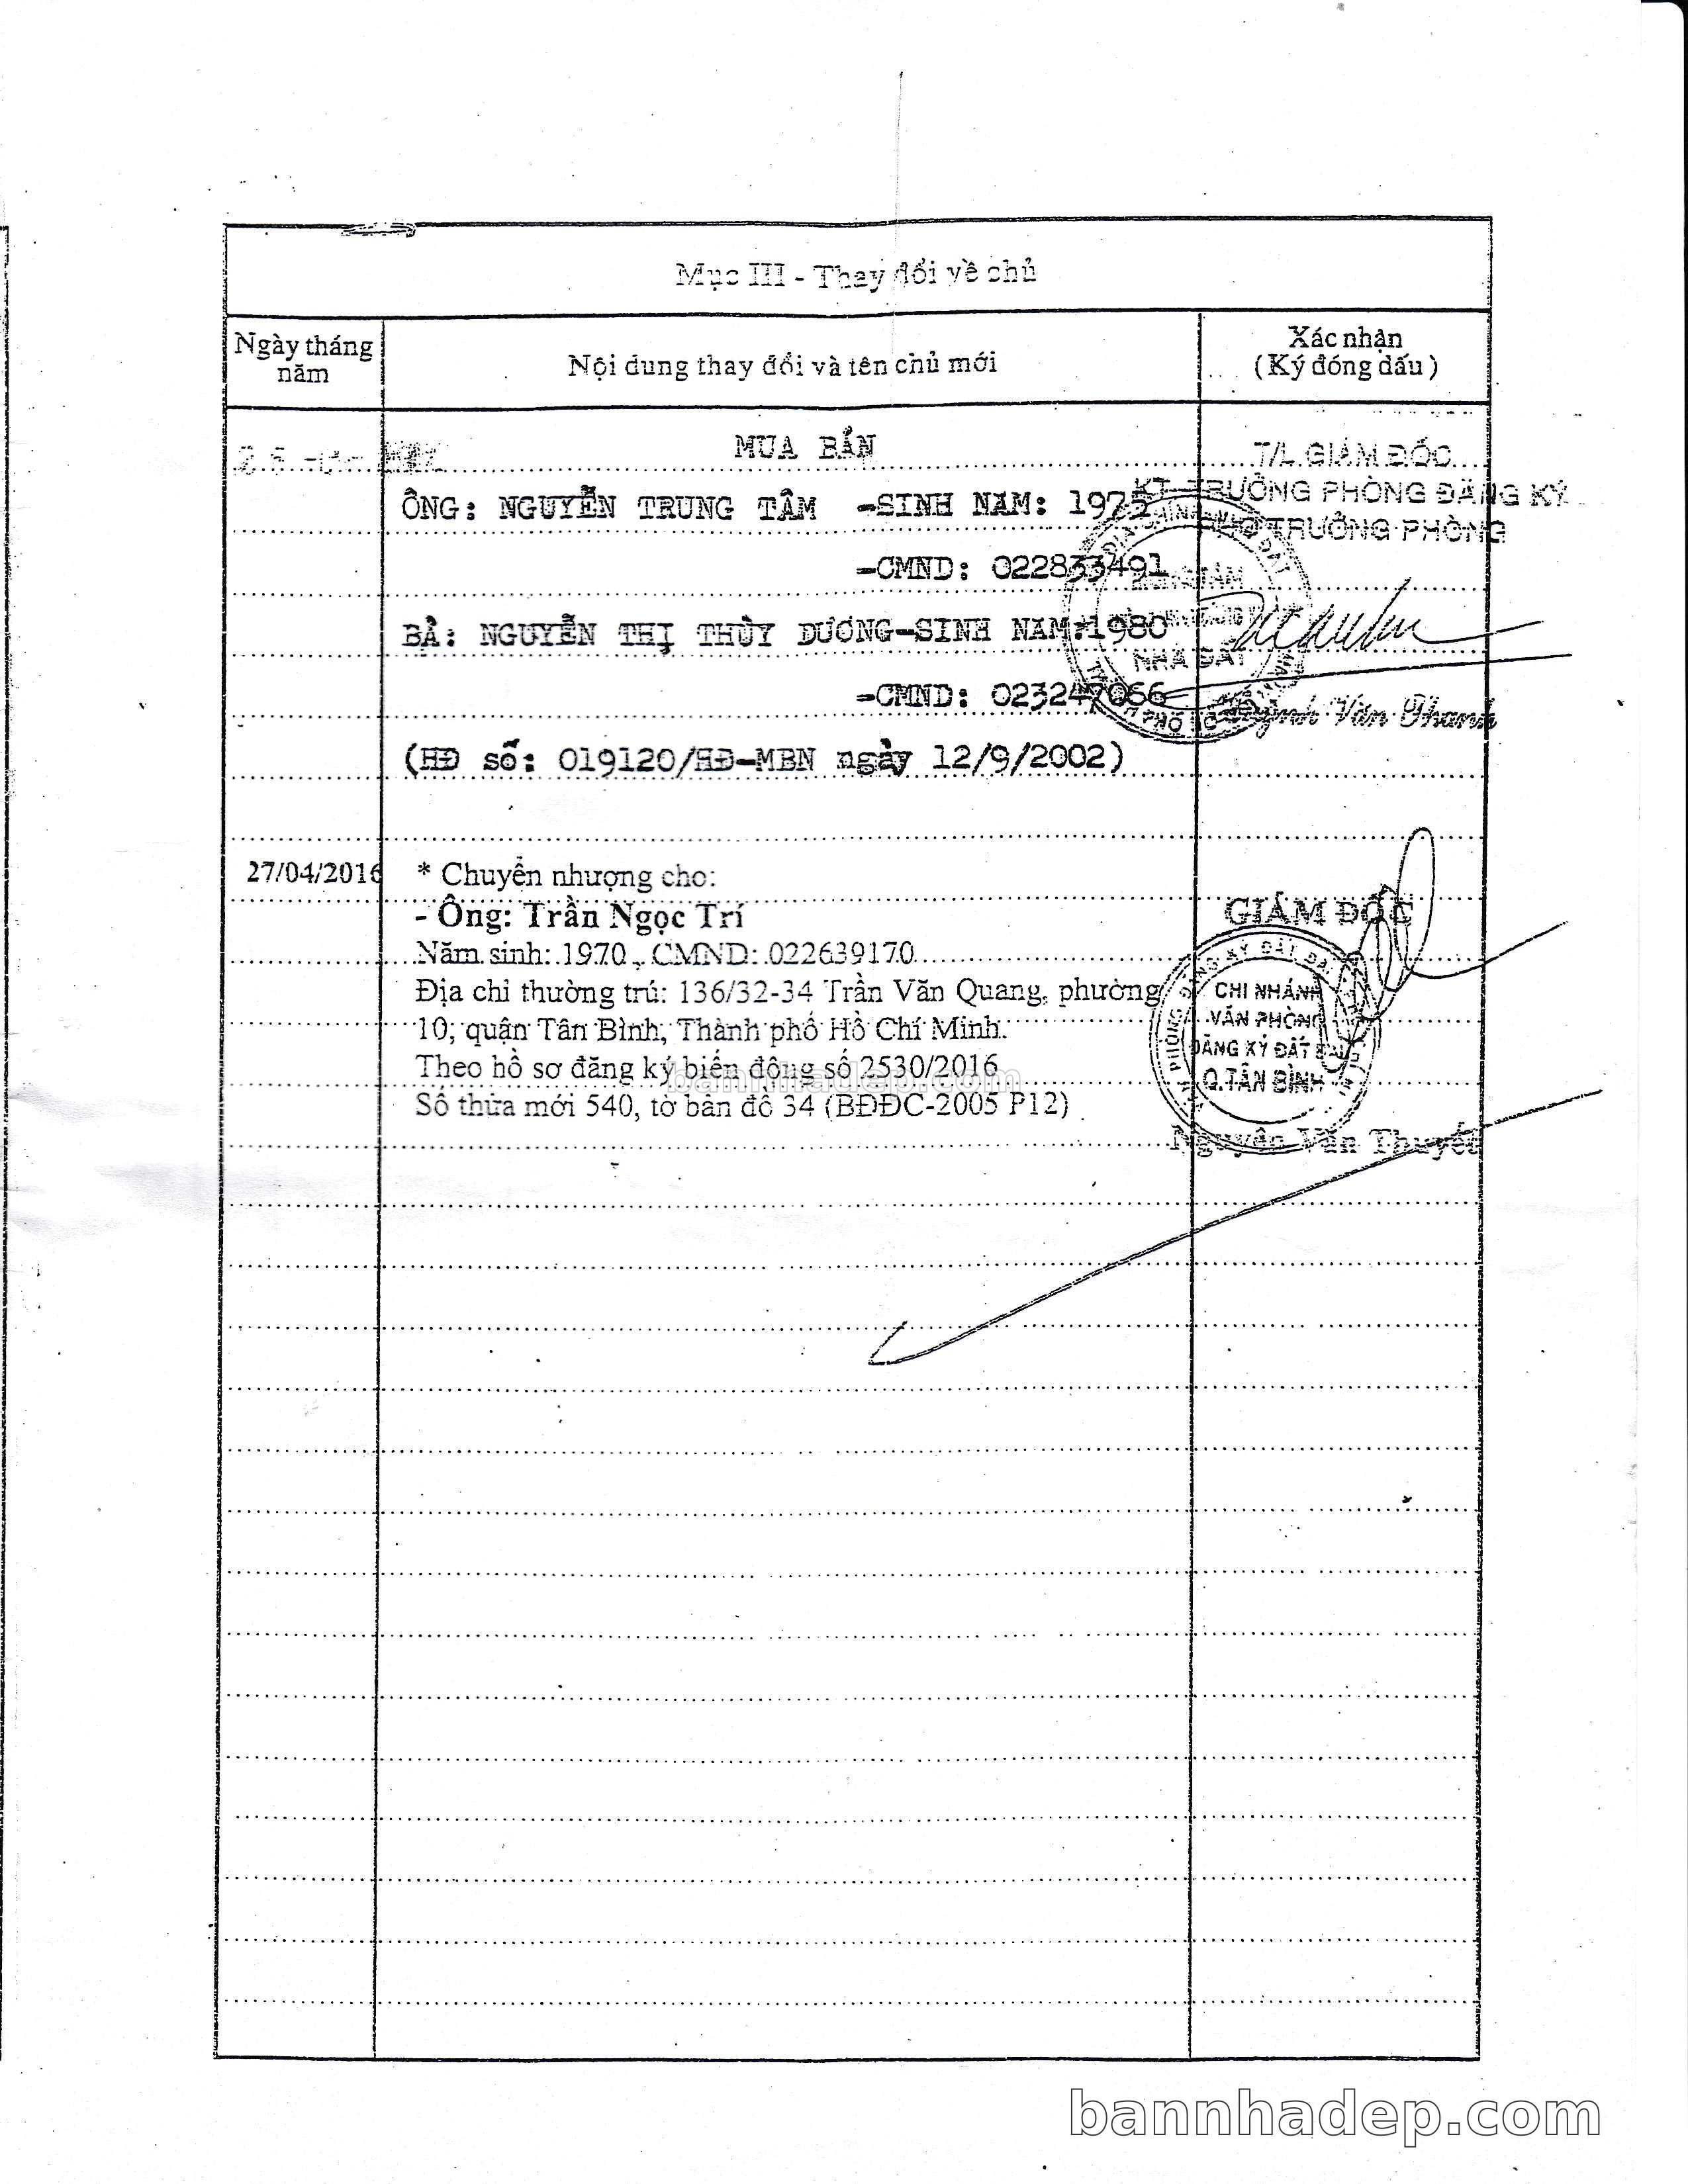 Mục III - Thay đổi về chủ
Ngày tháng năm
Nội dung thay đổi và tên chủ mới
Xác nhận
(Ký đóng dấu)
MUA BÁN
T/L. GIÁM ĐỐC
ÔNG: NGUYỄN TRUNG TÂM -SINH NĂM: 1975
KT. TRƯỞNG PHÒNG ĐĂNG KÝ
PHÓ TRƯỞNG PHÒNG
-CMND: 022833491
BÀ: NGUYỄN THỊ THÙY DƯƠNG-SINH NĂM:1980
NHÀ ĐẤT
-CMND: 023247066
Huỳnh Văn Thanh
(HĐ số: 019120/HĐ-MBN ngày 12/9/2002)
27/04/2016
* Chuyển nhượng cho:
- Ông: Trần Ngọc Trí
GIÁM ĐỐC
Năm sinh: 1970 , CMND: 022639170
Địa chỉ thường trú: 136/32-34 Trần Văn Quang, phường
10, quận Tân Bình, Thành phố Hồ Chí Minh.
Theo hồ sơ đăng ký biến động số 2530/2016
Số thửa mới 540, tờ bản đồ 34 (BĐĐC-2005 P12)
CHI NHÁNH
VĂN PHÒNG
ĐĂNG KÝ ĐẤT ĐAI
Q.TÂN BÌNH
Nguyễn Văn Thuyết
bannhadep.com
bannhadep.com